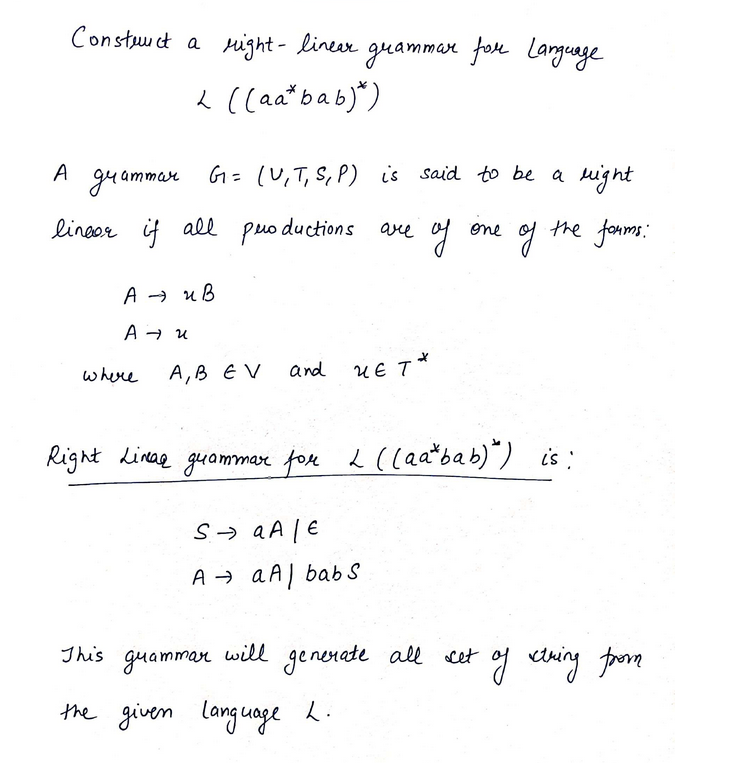 Construct a right-linear grammar for Language
L ((aa*bab)*)
A grammar G = (V, T, S, P) is said to be a right
linear if all productions are of one of the forms:
A → xB
A → x
where A, B ∈ V and x ∈ T*
Right Linear grammar for L ((aa*bab)*) is:
S → aA | ϵ
A → aA | babS
This grammar will generate all set of string from
the given language L.